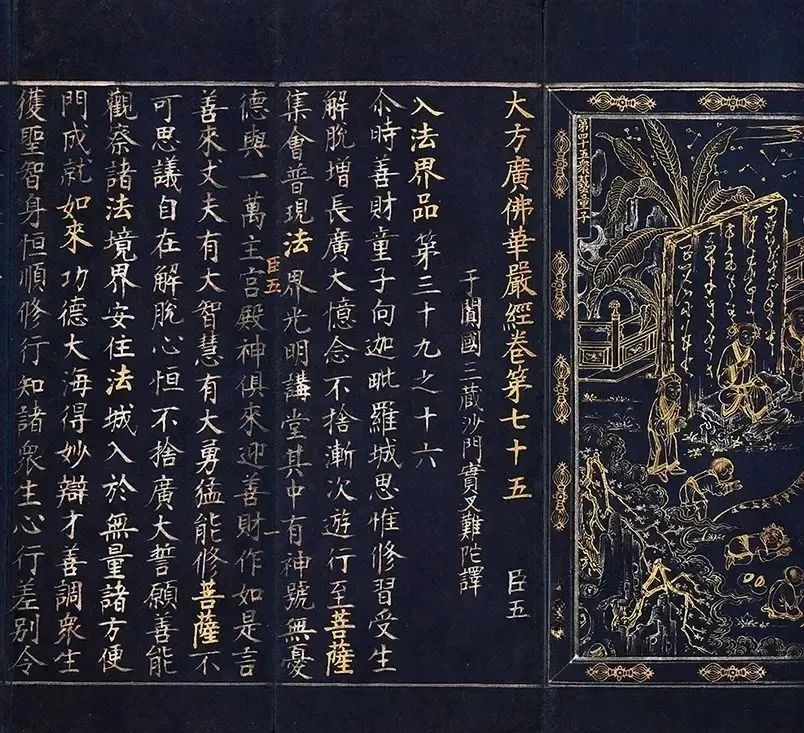 第四十五眾藝童子
大方廣佛華嚴經卷第七十五 臣五
于闐國三藏沙門實叉難陀譯
入法界品第三十九之十六
尒時善財童子向迦毗羅城思惟修習受生
解脫增長廣大憶念不捨漸次遊行至菩薩
集會普現法界光明講堂其中有神號無憂
臣五 一
德與一萬主宮殿神俱來迎善財作如是言
善來丈夫有大智慧有大勇猛能修菩薩不
可思議自在解脫心恒不捨廣大誓願善能
觀察諸法境界安住法城入於無量諸方便
門成就如來功德大海得妙辯才善調衆生
獲聖智身恒順修行知諸衆生心行差別令